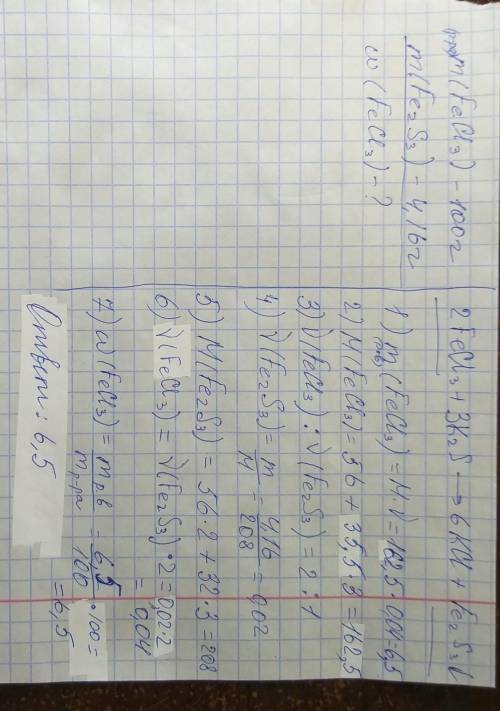 m(FeCl₃) - 100г
m(Fe₂S₃) - 4,16г
ω(FeCl₃) - ?
2FeCl₃ + 3K₂S → 6KCl + Fe₂S₃↓
1) m(FeCl₃) = M·ν = 162,5·0,04 = 6,5
2) M(FeCl₃) = 56 + 35,5·3 = 162,5
3) ν(FeCl₃) : ν(Fe₂S₃) = 2 : 1
4) ν(Fe₂S₃) = m/M = 4,16/208 = 0,02
5) M(Fe₂S₃) = 56·2 + 32·3 = 208
6) ν(FeCl₃) = ν(Fe₂S₃)·2 = 0,02·2
= 0,04
7) ω(FeCl₃) = m р.в/m р-ра = 6,5/100 ·100 =
= 6,5
Ответ: 6,5